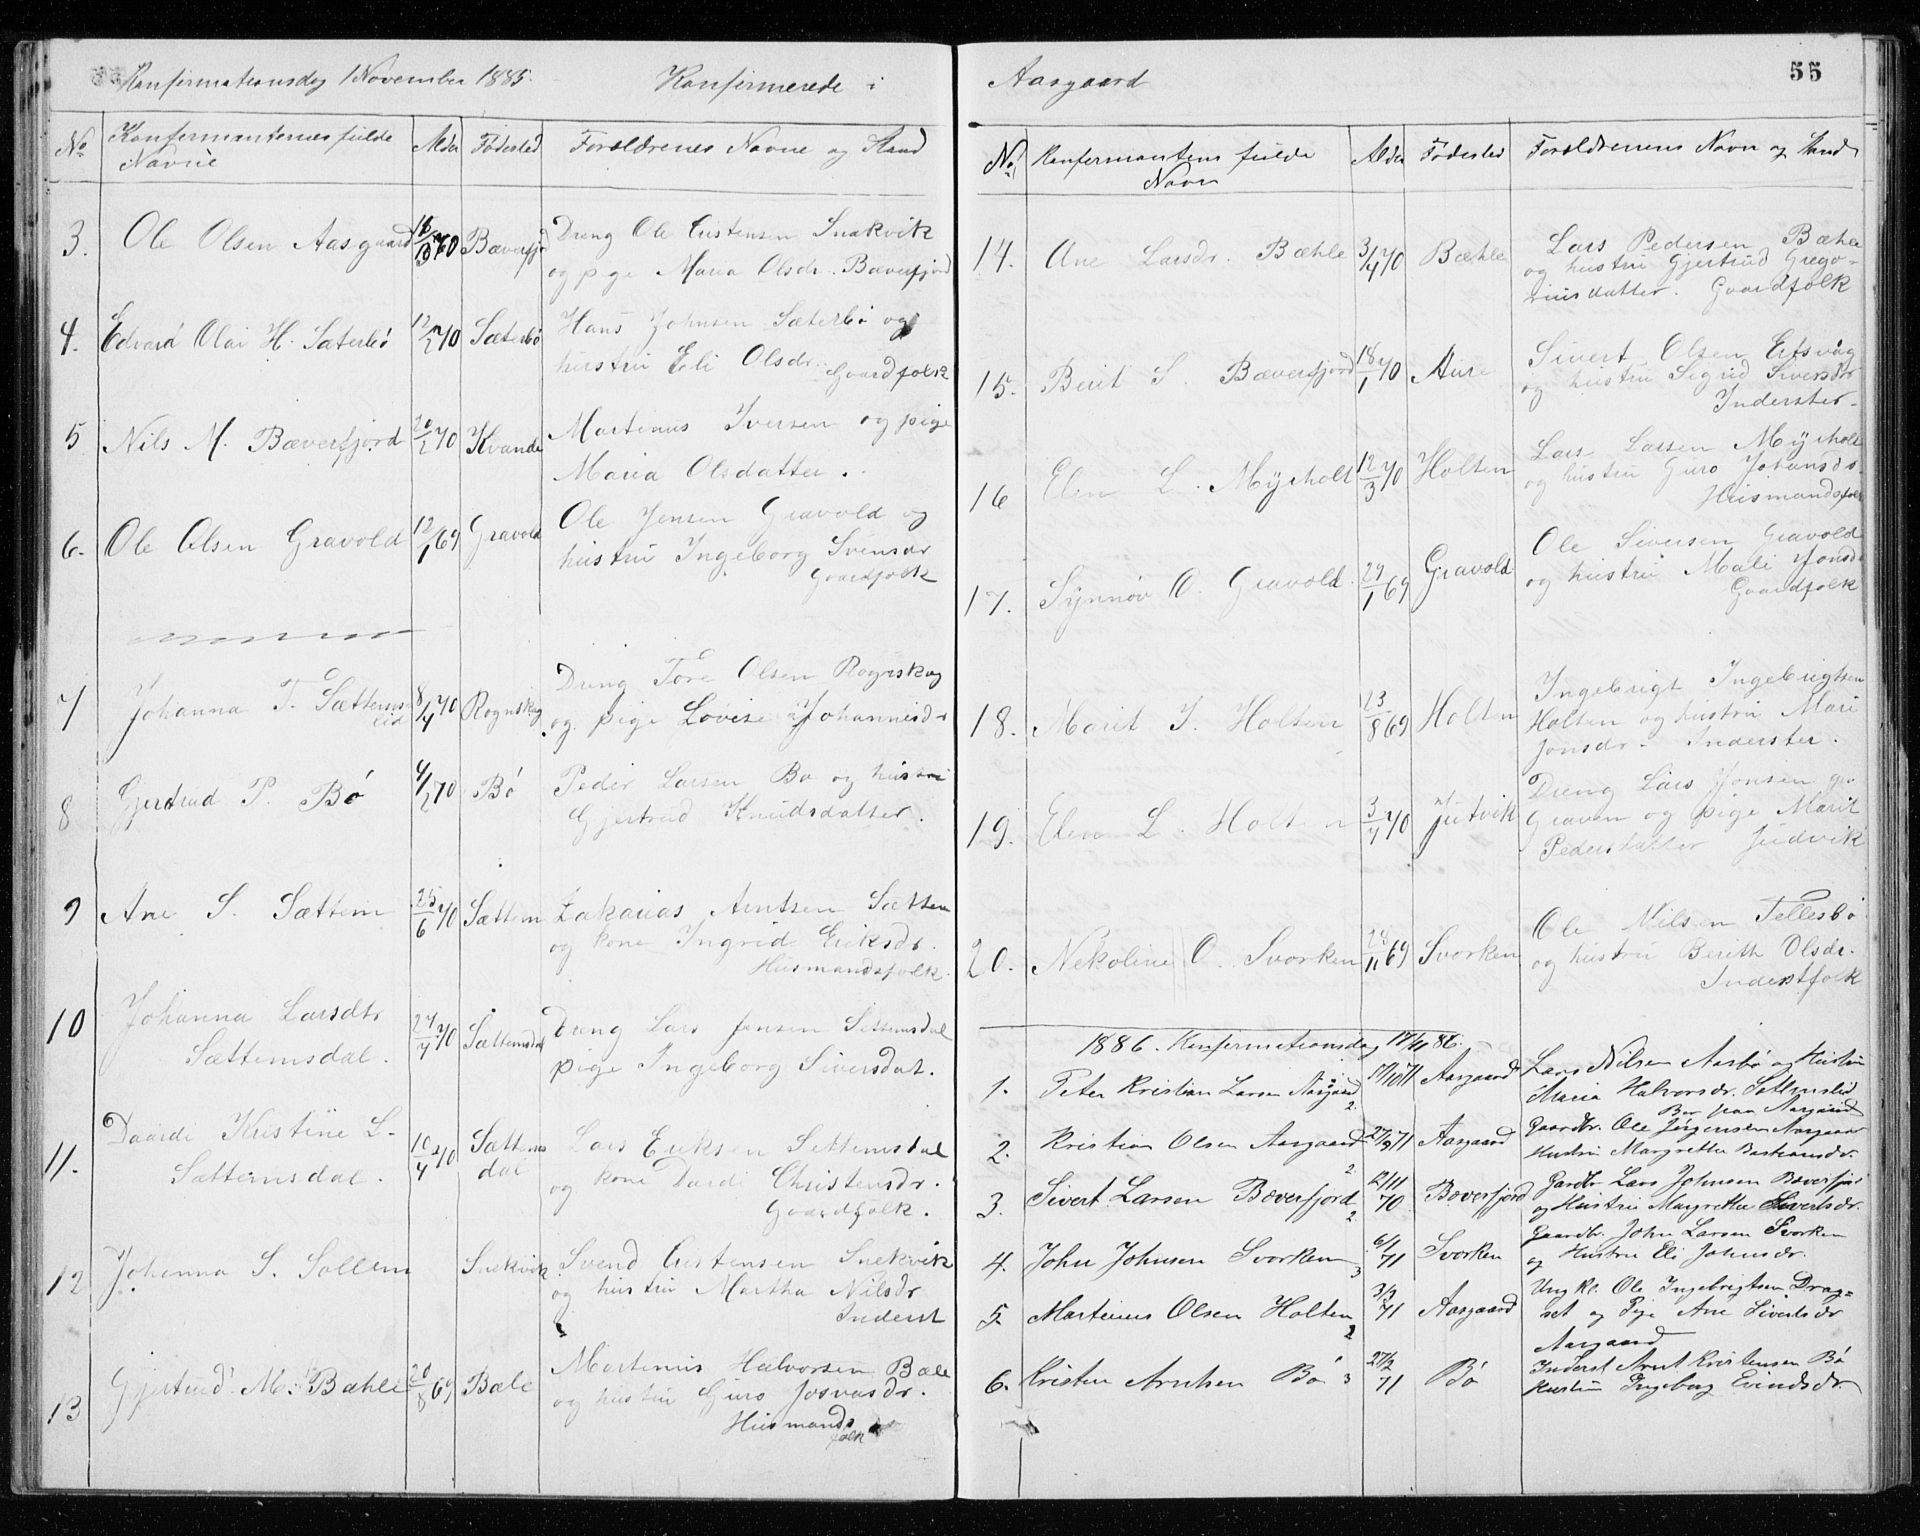 Konfirmationsdag 1 November 1885. Konfirmerede i
No. Konfirmantenes fulde Navne Alder Fødested Forældrenes Navne og Stand
3. Ole Olsen Aasgaard 70 Bæverfjord Dreng Ole Cristensen Snakvik
og pige Maria Olsdr. Bæverfjord
4. Edvard Olai H. Sæterbø 12/2 70 Sæterbø Hans Johnsen Sæterbø og
hustru Eli Olsdr. Gaardfolk
5 Nils M. Bæverfjord 20/2 70 Kvande Martinus Iversen og pige
Maria Olsdatter.
6. Ole Olsen Gravold 12/1 69 Gravold Ole Jensen Gravold og
hustru Ingeborg Svensdr
Gaardfolk
7 Johanna T. Sættemslid 8/4 70 Rognskog Dreng Tore Olsen Rognskog
og pige Lovise Johannesdr
8 Gjertrud P. Bø 4/2 70 Bø Peder Larsen Bø og hustru
Gjertrud Knudsdatter.
9 Ane S. Sættem 25/6 70 Sættem Zakarias Arntsen Sættem
og kone Ingrid Eriksdr.
Husmandsfolk.
10 Johanna Larsdtr
Sættemsdal. 27/4 70 Sættemsdal Dreng Lars Jensen Settemsdal
pige Ingeborg Siversdat.
11. Daarde Kristine L.
Sættemsdal. 10/4 70 Sættemsdal Lars Eriksen Settemsdal
og kone Dardi Christensdr.
Gaardfolk.
12 Johanna S. Sollem Snekvik Svend Cristensen Snekvik
og hustru Martha Nilsdr
Inderst
13 Gjertrud M. Bæhle 28/8 69 Bæle Martinus Halvorsen Bæle
og hustru Guro Josvasdr.
Husmandsfolk
Aasgaard 55
No. Konfermantens fulde Navn Alder Fødested Foreldrenens Navn og Stand
14. Ane Larsdr. Bæhle 3/4 70 Bæhle Lars Pedersen Bæhle
og hustru Gjertrud Grego-
riusdatter. Gaardfolk
15. Berit S. Bæverfjord 18/1 70 Aure Sivert Olsen Ertsvåg
og hustru Sigrid Siversdr
Inderster.
16 Elen L. Myrholt 12/3 70 Holten Lars Larsen Myrholt
og hustru Guro Johansdr
Husmandsfolk
17. Synnøv O. Gravold. 29/1 69 Gravold Ole Siversen Gravold
og hustru Mali Jonsdr
Gaardfolk
18. Marit I. Holten 23/8 69 Holten Ingebrigt Ingebrigtsen
Holten og hustru Mari
Jonsdr. Inderster.
19. Elen L. Holten 3/4 70 Jutvik Dreng Lars Jonsen
Graven og pige Marit
Pedersdatter Judvik
20. Nekoline O. Svorken 28/11 69 Svorken Ole Nilsen Tellesbø
og hustru Berith Olsdr.
Inderstfolk
1886. Konfermationsdag 17/11 86.
1. Peter Kristian Larsen Aasgaard 2. 17/10 71 Aasgaard Lars Nilsen Aasbø og Hustru
Maria Halvorsdr. Sættemslid
Bor paa Aasgaard
2. Kristian Olsen Aasgaard 2. 27/2 71 Aasgaard Gaardbr. Ole Jørgensen Aasgaard
Hustru Margrethe Bastiansdr.
3. Sivert Larsen Bæverfjord 2 12/11 70 Bæverfjord Gardbr Lars Johnsen Bæverfjord
og Hustru Margrethe Sivertsdr.
4. John Johnsen Svorken 3 6/1 71 Svorken Gaardbr. John Larsen Svorken
og Hustru Eli Johnsdr.
5. Martinus Olsen Holten 2 3/3 71 Aasgaard Ung kl. Ole Ingebrigtsen Drag=
set og Pige Ane Sivertsdr
Aasgaard
6. Kristen Arntsen Bø 3 27/2 71 Bø Inderst Arnt Kristensen Bø
Hustru Ingeborg Eindsdr.